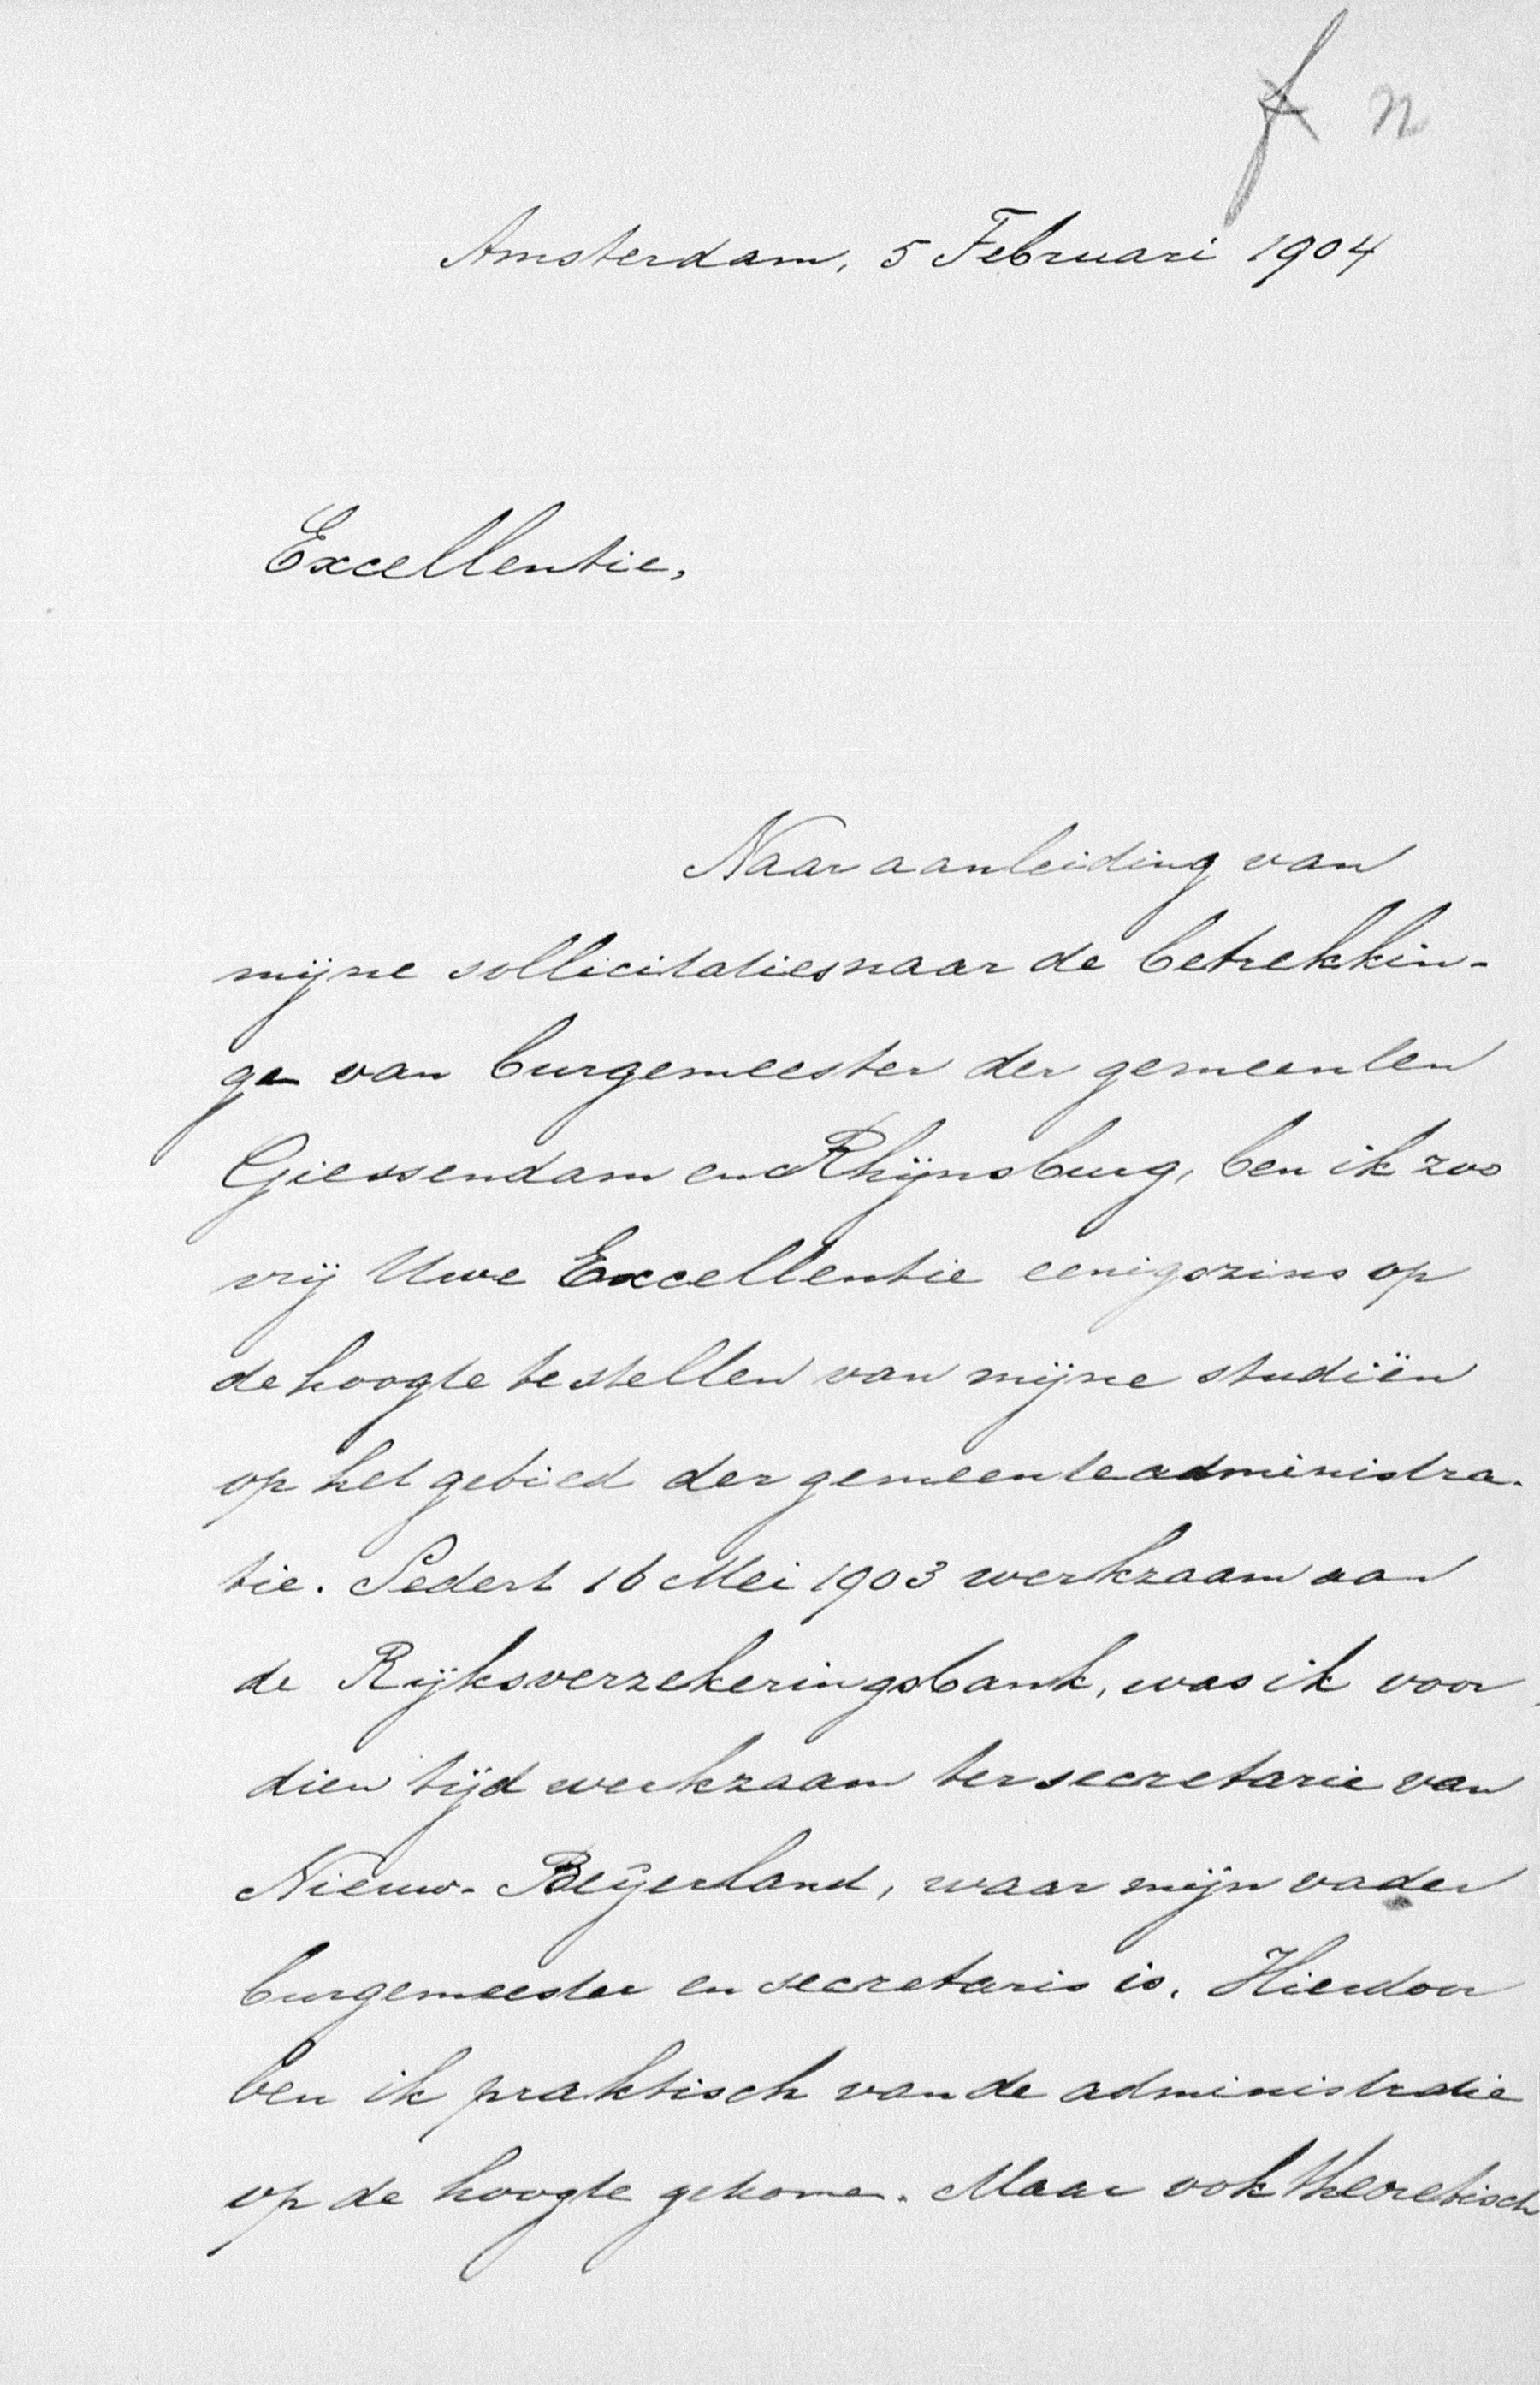 n
Amsterdam, 5 Februari 1904
Excellentie,
Naar aanleiding van
mijne sollicitaties naar de betrekkin-
gen van burgemeester der gemeenten
Giessendam en Rhijnsburg, ben ik zoo
vrij Uwe Excellentie eenigszins op
de hoogte te stellen van mijne studiën
op het gebied der gemeenteadministra-
tie. Sedert 16 Mei 1903 werkzaam aan
de Rijksverzekeringsbank, was ik voor
dien tijd werkzaam ter secretarie van
Nieuw-Beijerland, waar mijn vader
burgemeester en secretaris is. Hierdoor
ben ik praktisch van de administratie
op de hoogte gekomen. Maar ook theoretisch